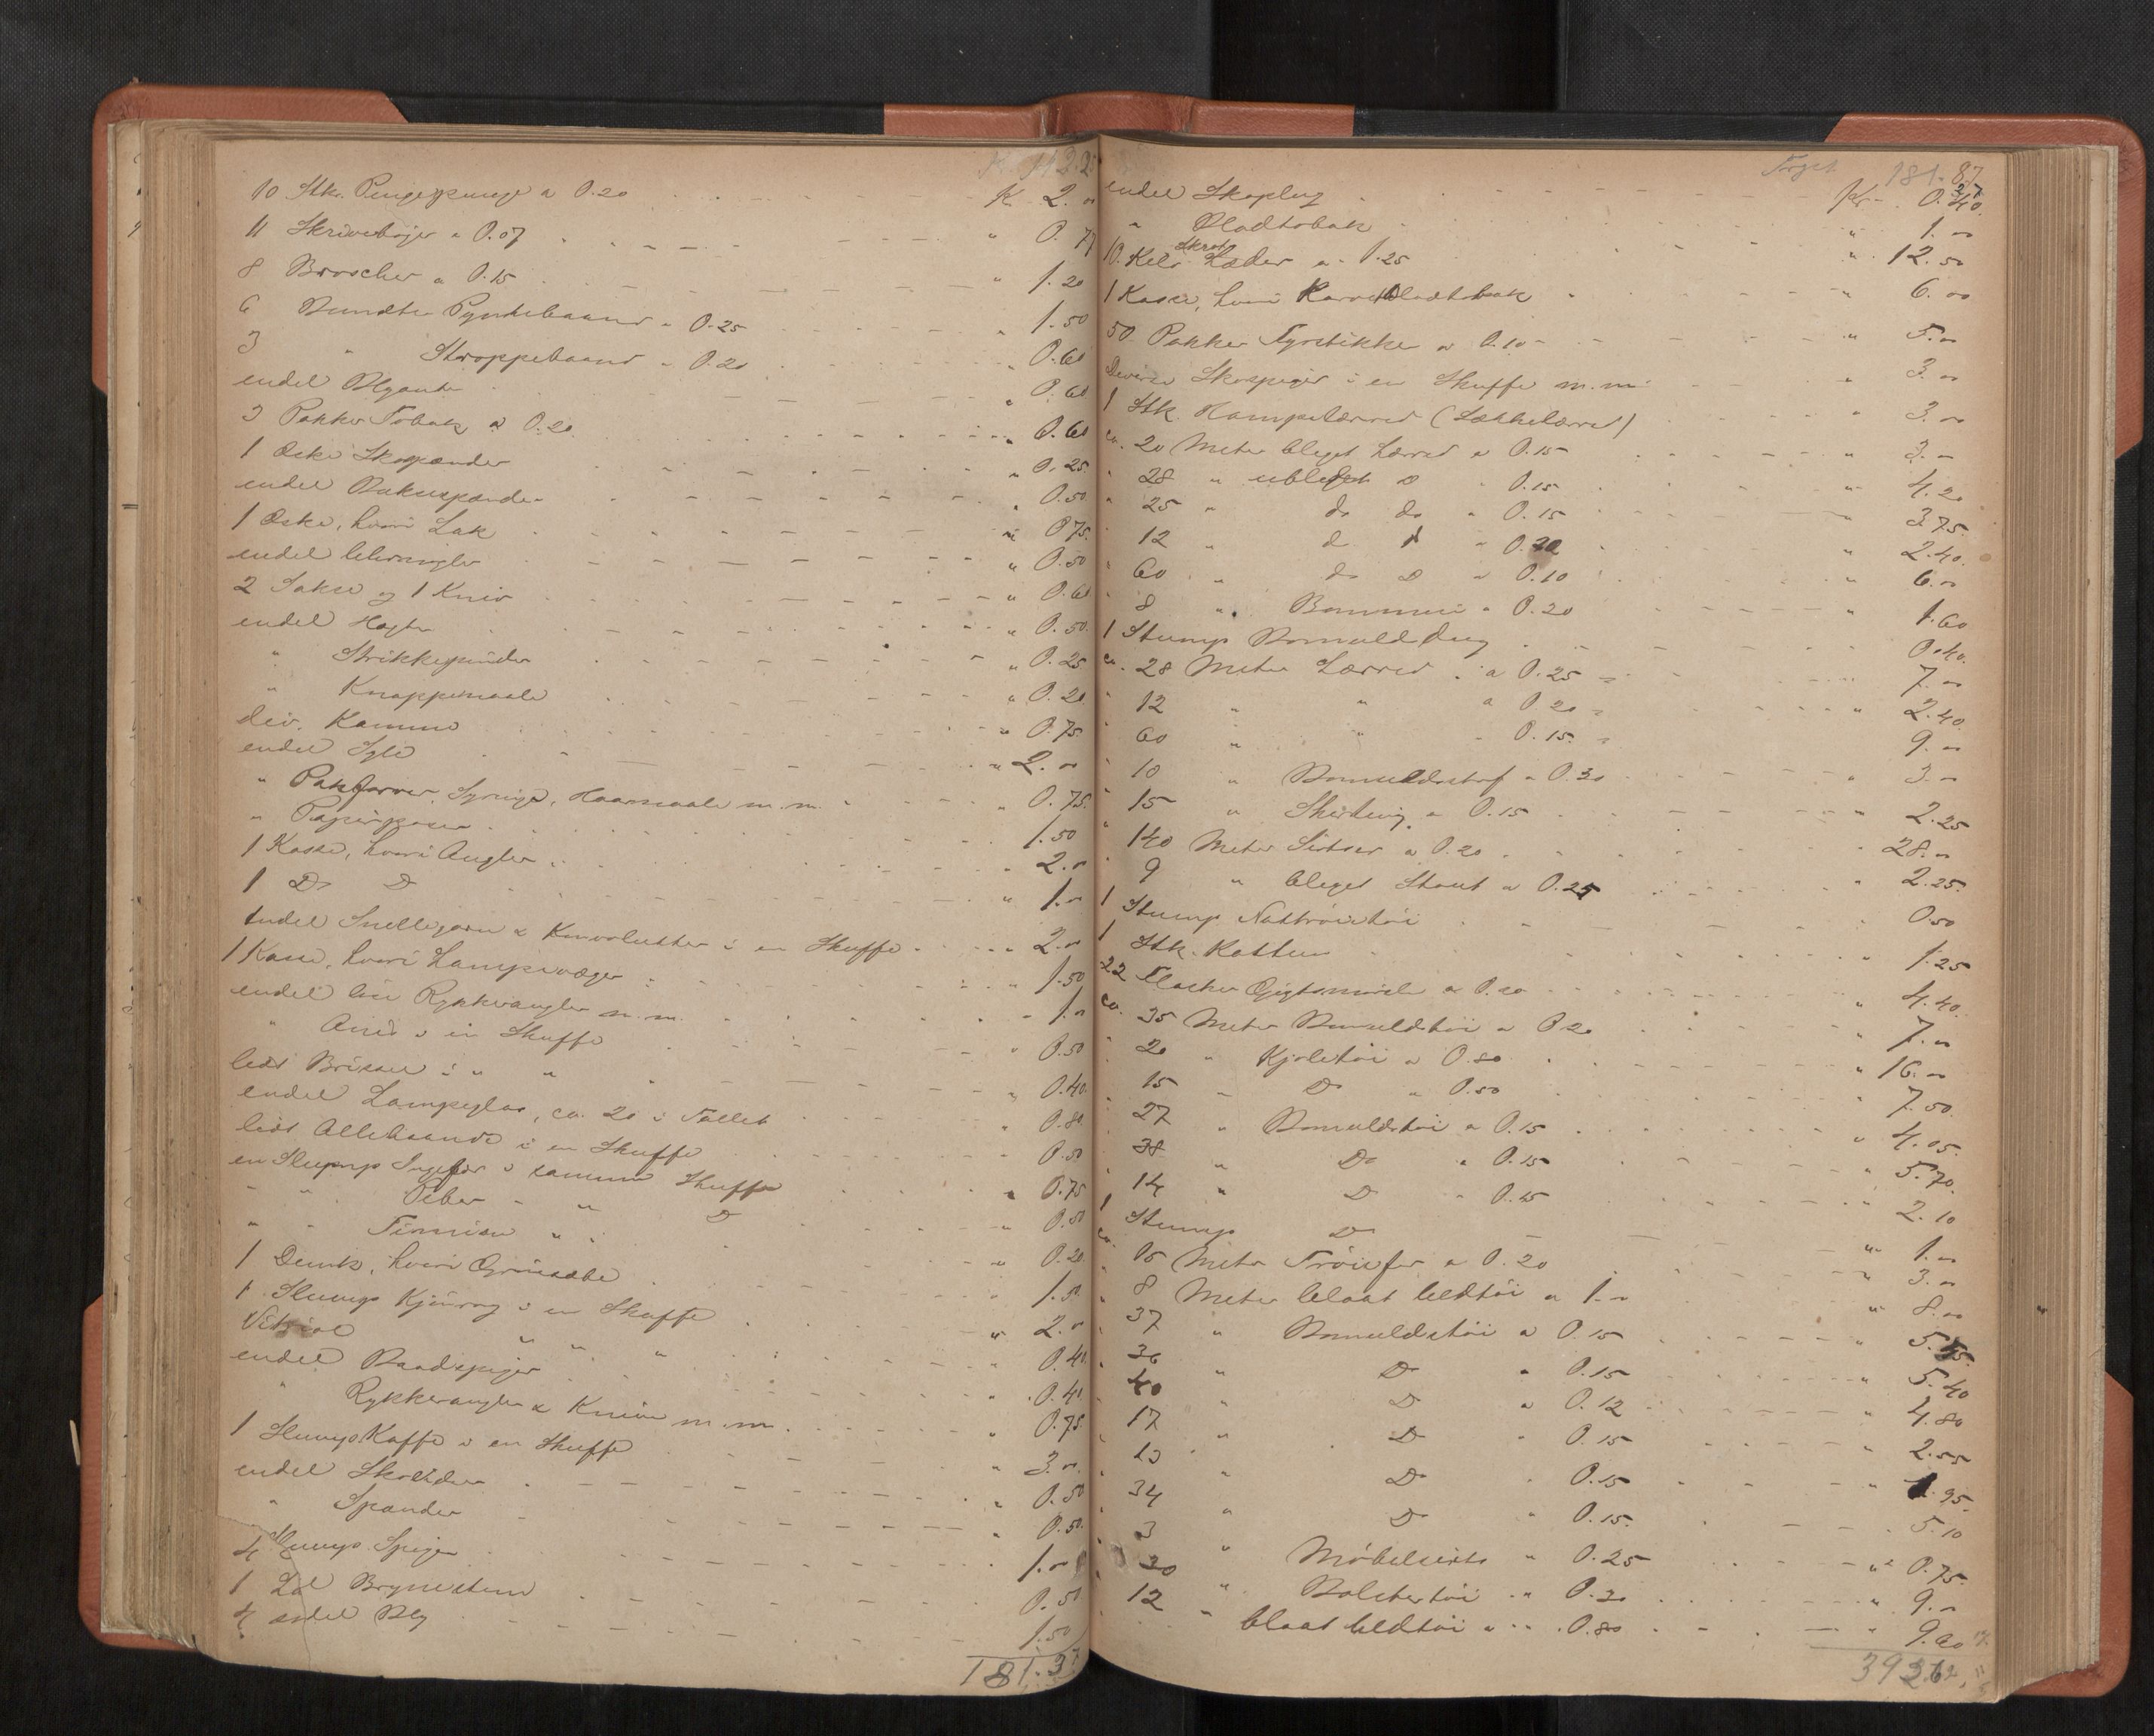 10 Stk. Pengepunge a 0.20 K. 2.00
11 Skrivebøjer a 0.07 " 0.77
8 Broscher a 0.15 " 1.20
6 Bundter Pyntebaand a 0.25 " 1.50
3 " Stroppebaand a 0.20 " 0.60
endel Blyanter " 0.60
3 Pakker Tobak a 0.20 " 0.60
1 Æske Skospænder " 0.25
endel Buksespænder " 0.50
1 Æske, hvori Lak " 0.75
endel Uhrnøgler " 0.50
2 Sakse og 1 Kniv " 0.60
endel Hægter " 0.50
" Strikkepinder " 0.25
" Knappenaale " 0.20
div. Kamme " 0.75
endel Syle " 2.00
" Pakfarver, Syringe, Haarnaale m.m. " 0.75
" Papirposer 1.50
1 Kasse, hvori Angler 2.00
1 Do Do " 1.00
Endel Snellegarn & Konvolutter i en Skuffe 2.00
1 Kasse, hvori Lampevæger " 1.50
endel Rykkerangler m.m. " 1.00
" Anis i en Skuffe " 0.50
lidt Brissel i " " " 0.40
endel Lampeglas, ca. 20 i Tallet " 0.80
lidt Allehaande i en Skuffe 0.50
en Slump Ingefær i samme Skuffe " 0.75
" " Peber " " D " 0.50
" " Timian " " " 0.20
1 Dunk, hvori Grønsæbe " 1.50
1 Slump Kjønrøg i en Skuffe " 2.00
Vitriol " " " 0.40
endel Baadspiger " 0.40
" Rykkerangler & Knive m.m. " 0.75
1 Slump Kaffe i en Skuffe " 3.00
endel Skolisder " 0.50
" Spænder " 0.50
4 Slumps Spiger 1.00
1 Del Brynesten 0.50
endel Bly 1.50
181.37
Trspt 181.37
endel Skoplug Kr. 0.40
" Bladtobak " 1.00
10 Kilo Skrot Læder a 1.25 " 12.50
1 Kasse, hvori Karve Bladtobak " 6.00
50 Pakker Fyrstikker a 0.10 " 5.00
Diverse Skospiger i en Skuffe m.m. " 3.00
1 Stk. Hampelærred (Sækkelærred) " 3.00
ca. 20 Meter bleget Lærred a 0.15 " 3.00
" 28 " ubleget D " 0.15 " 4.20
" 25 " do do " 0.15 " 3.75
" 12 " d d " 0.20 " 2.40
" 60 " do D a 0.10 " 6.00
" 8 " Bommesi a 0.20 " 1.60
1 Stump Bomulddug 0.40
ca. 28 Meter Lærred a 0.25 7.00
" 12 " " a 0.20 " 2.40
" 60 " " " 0.15 9.00
" 10 " Bomuldsstof a 0.30 " 3.00
" 15 " Shirting a 0.15 " 2.25
" 140 Meter Sirtser a 0.20 28.00
" 9 " bleget Stout a 0.25 " 2.25
1 Stump Nattrøietøi 0.50
1 Stk. Kattun " 1.25
22 Flasker Gigtsmørelse a 0.20 " 4.40
ca. 35 Meter Bomuldstøi a 0.20 " 7.00
" 20 " Kjoletøi a 0.80 " 16.00
" 15 " Do " 0.50 " 7.50
" 27 " Bomuldstøi a 0.15 " 4.05
" 38 " Do " 0.15 " 5.70
" 14 " D " 0.15 " 2.10
1 Stump D " 1.00
ca. 15 Meter Trøiefor a 0.20 " 3.00
" 8 Meter blaat Uldtøi a 1.00 " 8.00
" 37 " Bomuldstøi a 0.15 " 5.55
" 36 " D " 0.15 " 5.40
" 40 " D a 0.12 " 4.80
" 17 " D " 0.15 " 2.55
" 13 " D " 0.15 " 1.95
" 34 " D " 0.15 " 5.10
" 3 " Møbelsirts " 0.25 " 0.75
" 30 " Bolstertøi " 0.30 " 9.00
12 " blaat Uldtøi a 0.80 " 9.60
392.62